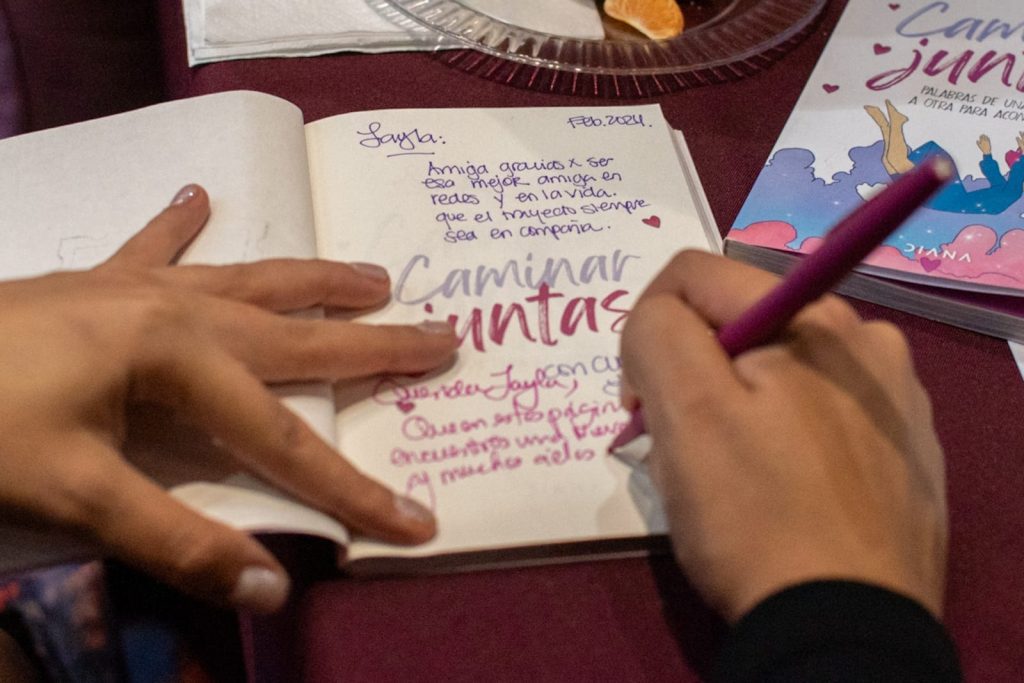 Layla:
Feb. 2024.
Amiga gracias x ser
esa mejor amiga en
redes y en la vida.
que el trayecto siempre
sea en compañía.
Caminar
juntas
con cu
Querida Layla,
Que en estas págin
encuentres una
y muchos cielos
Cami
junt
PALABRAS DE UNA
A OTRA PARA ACO
VNVIC